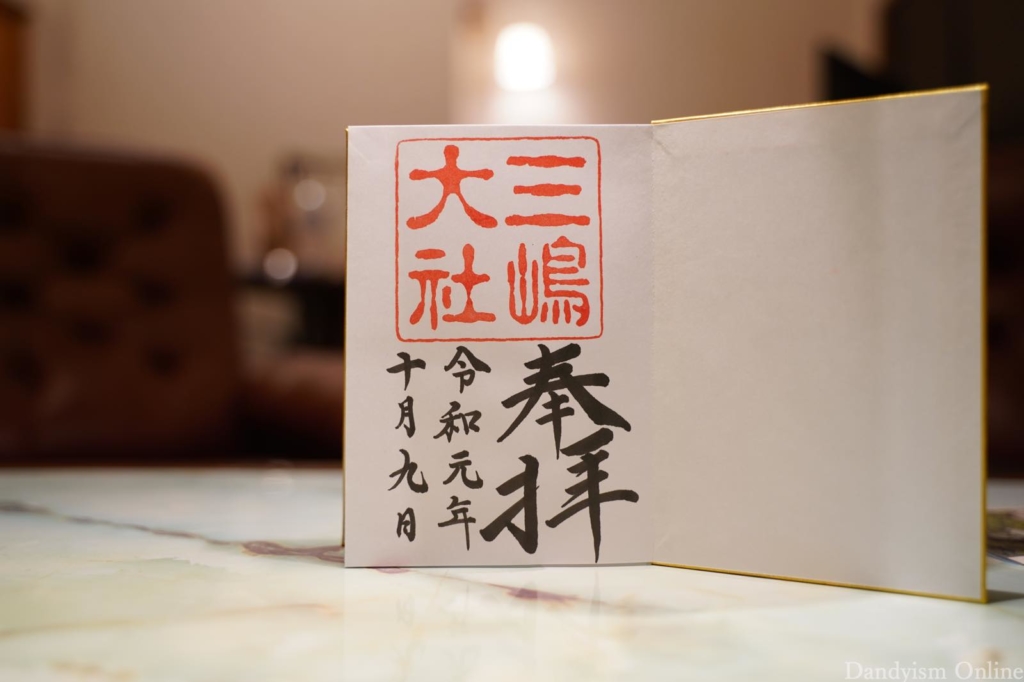 三嶋
大社
奉拝
令和元年
十月九日
Dandyism Online